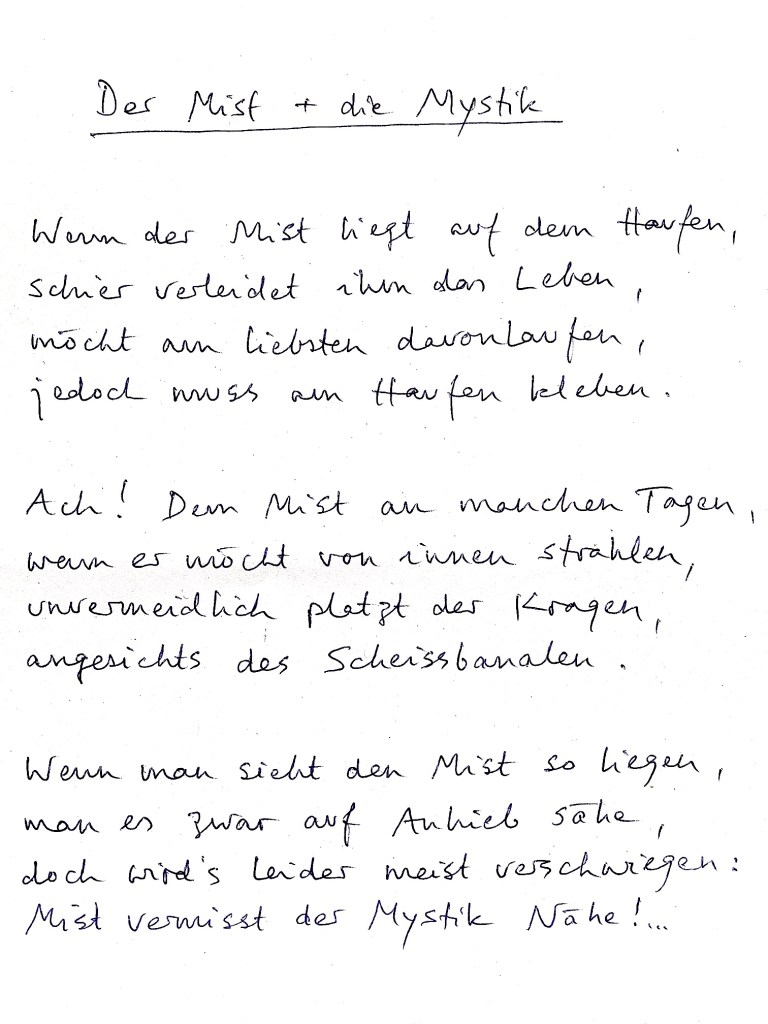 Der Mist + die Mystik
Wenn der Mist liegt auf dem Haufen,
schier verleidet ihm das Leben,
möcht am liebsten davonlaufen,
jedoch muss am Haufen kleben.
Ach! Dem Mist an manchen Tagen,
wenn er möcht von innen strahlen,
unvermeidlich platzt der Kragen,
angesichts des Scheissbanalen.
Wenn man sieht den Mist so liegen,
man es zwar auf Anhieb sähe,
doch wird's leider meist verschwiegen:
Mist vermisst der Mystik Nähe!...